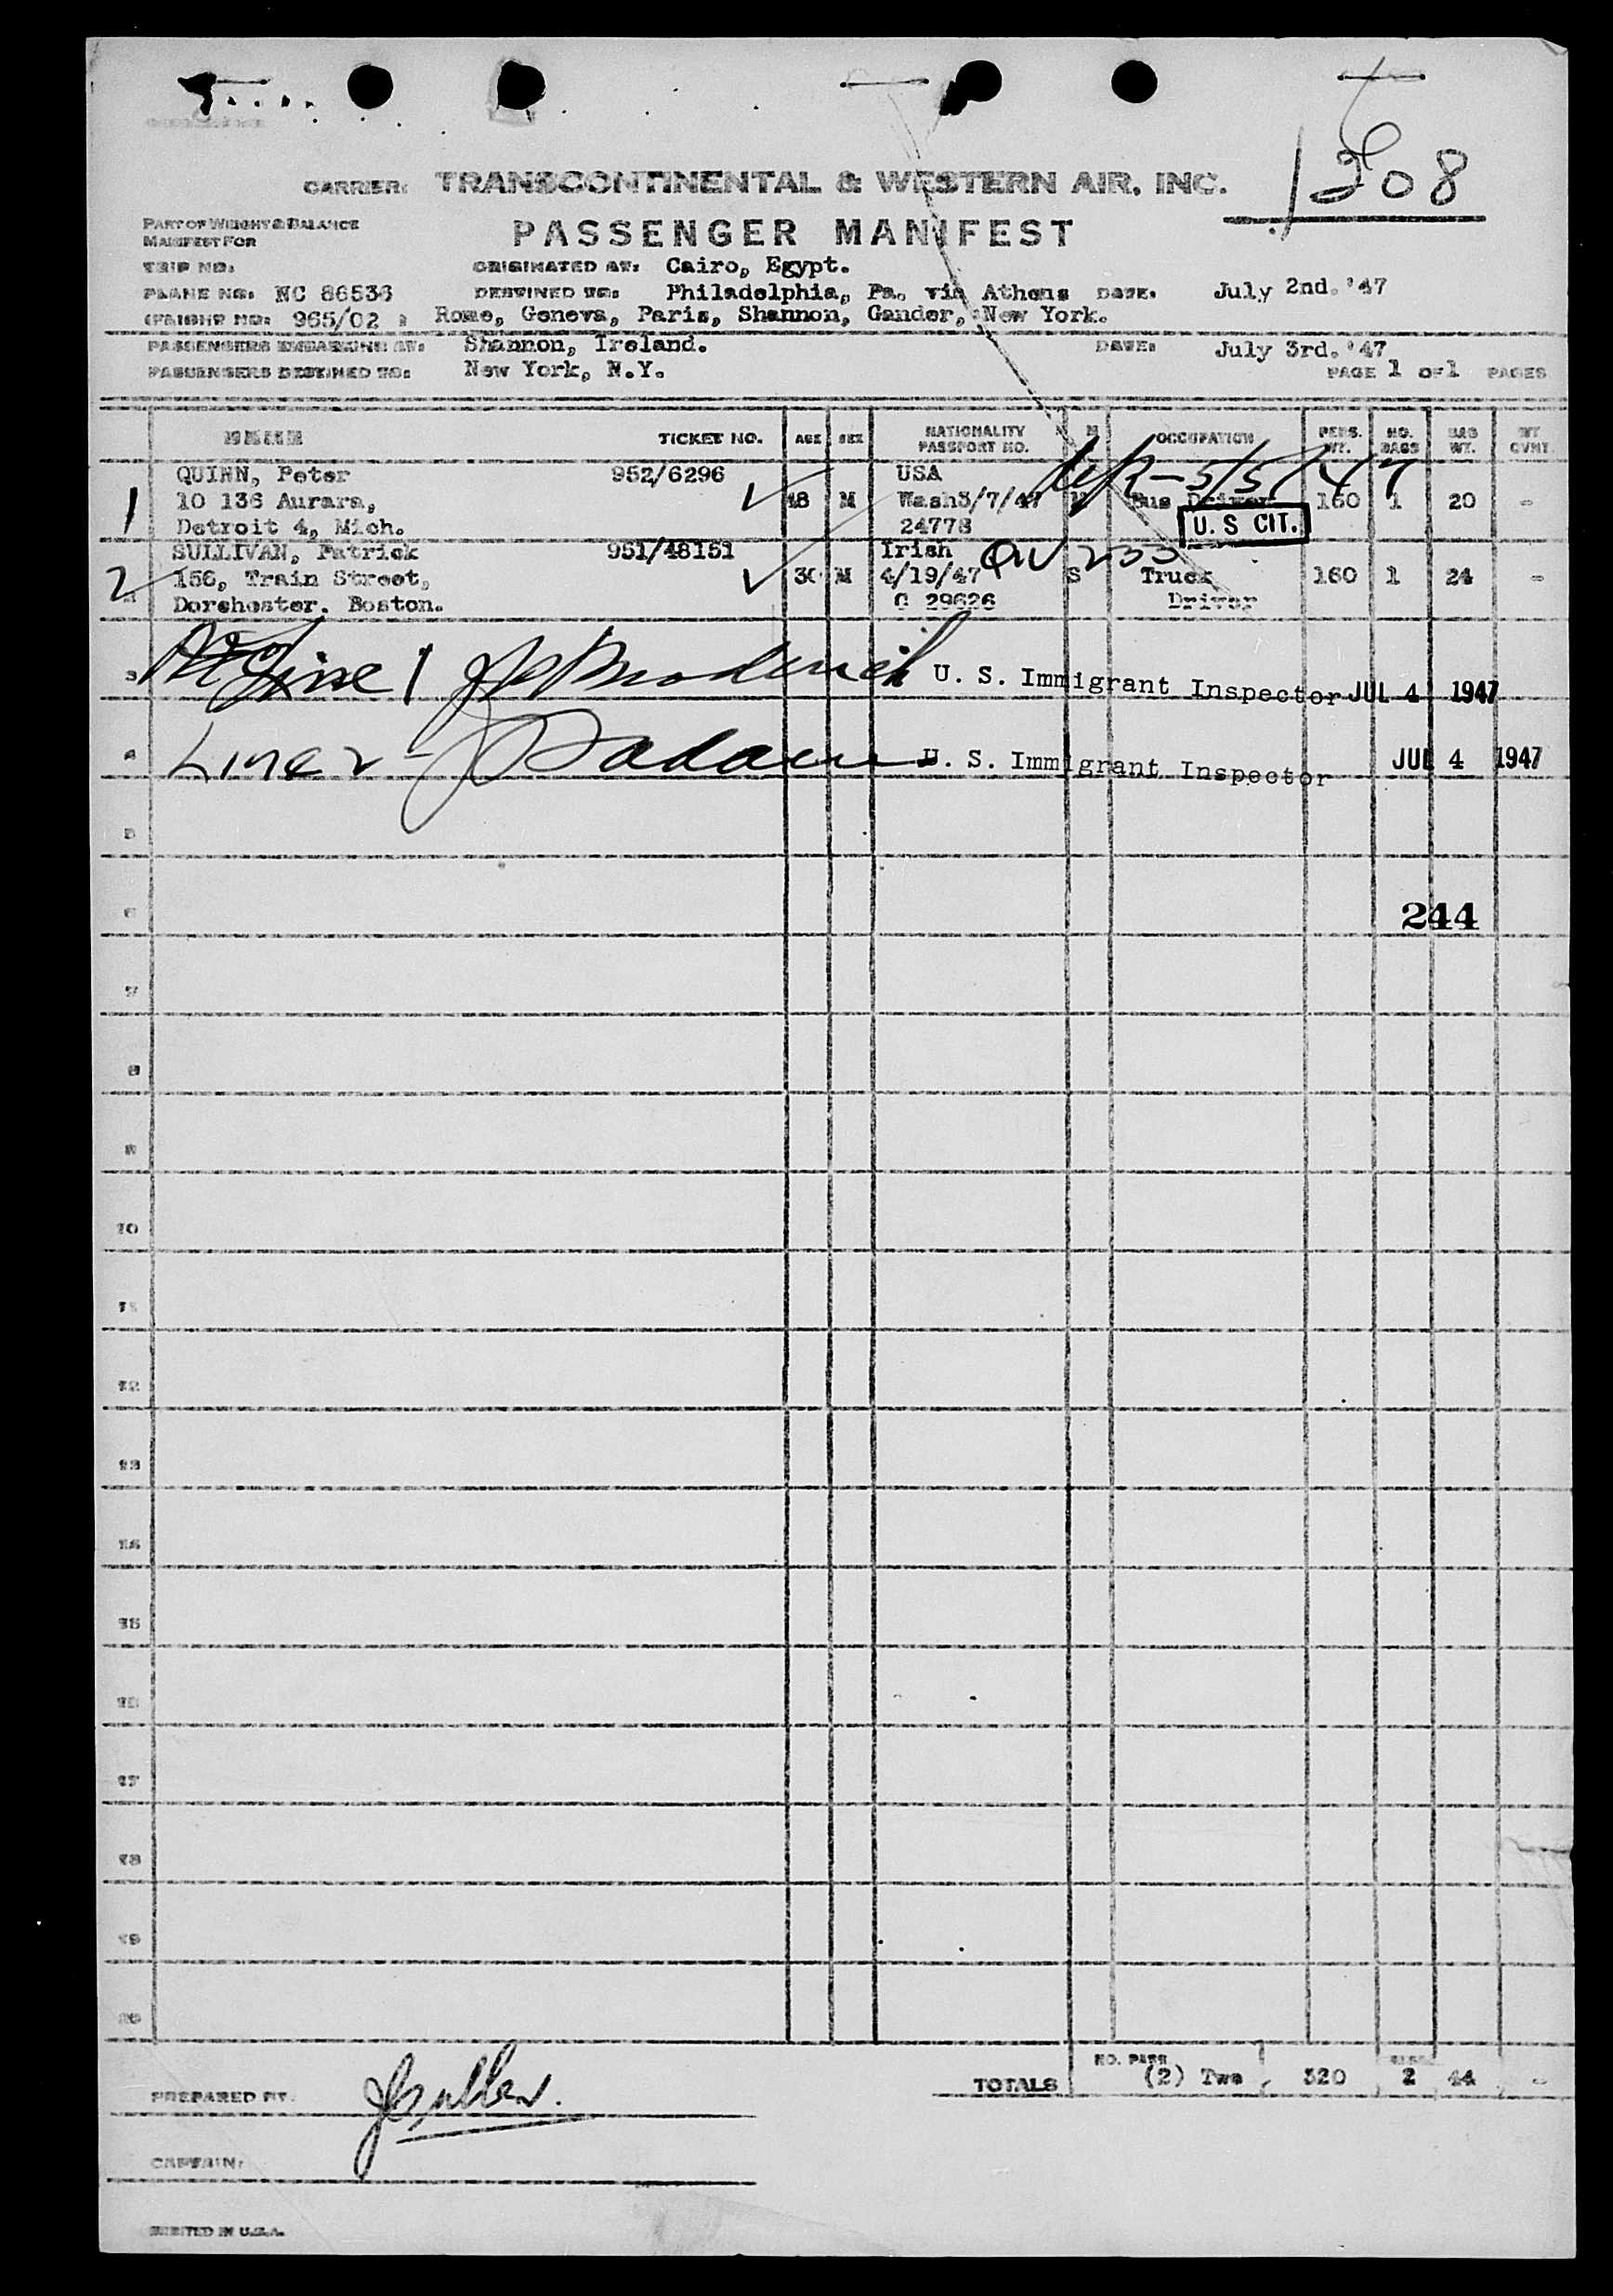 1208
CARRIER: TRANSCONTINENTAL & WESTERN AIR, INC.
PART OF WEIGHT & BALANCE
MANIFEST FOR
PASSENGER MANIFEST
TRIP NO: ORIGINATED AT: Cairo, Egypt.
PLANE NO: NC 86536 DESTINED TO: Philadelphia, Pa. via Athens DATE: July 2nd.'47
965/02 Rome, Geneva, Paris, Shannon, Gander, New York.
PASSENGERS EMBARKING AT: Shannon, Ireland. DATE: July 3rd.'47
PASSENGERS DESTINED TO: New York, N.Y. PAGE 1 OF 1 PAGES
NAME TICKET NO. AGE SEX NATIONALITY PASSPORT NO. M OCCUPATION PERS. WT. NO. BAGS BAG WT. WT
QUINN, Peter 952/6296 USA
1 10 136 Aurara, 48 M Wash3/7/47 M Bus Driver 160 1 20 -
Detroit 4, Mich. 24778 U. S CIT.
SULLIVAN, Patrick 951/48151 Irish QIV
2 156, Train Street, 30 M 4/19/47 S Truck 160 1 24 -
Dorchester. Boston. 29626 Driver
3 Line 1 U. S. Immigrant Inspector JUL 4 1947
4 Line 2 - U. S. Immigrant Inspector JUL 4 1947
5
6 244
7
8
9
10
11
12
13
14
15
16
17
18
19
20
NO. PASS
TOTALS (2) Two 320 2 44 -
PREPARED BY.
CAPTAIN:
PRINTED IN U.S.A.